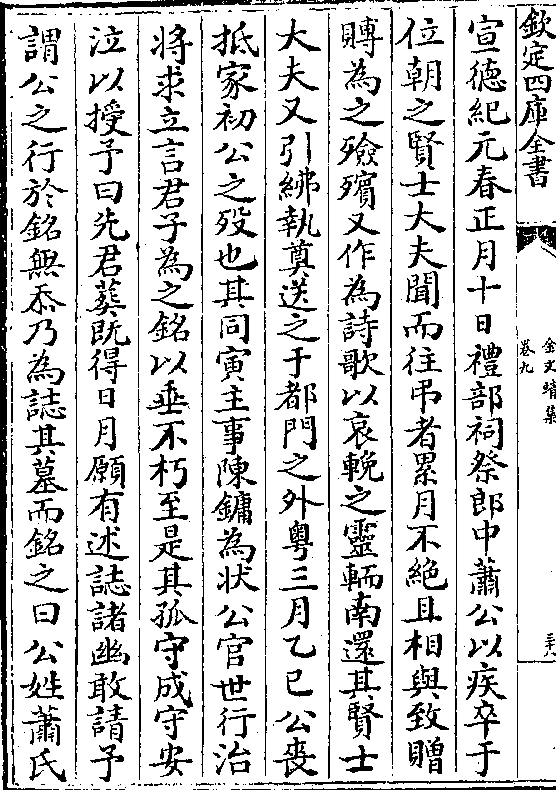 欽定四庫全書
金文靖集
卷九
三十八
宣德紀元春正月十日禮部祠祭郎中蕭公以疾卒于
位朝之賢士大夫聞而往弔者累月不絕且相與致贈
賻為之殮殯又作為詩歌以哀輓之靈輀南還其賢士
大夫又引紼執奠送之于都門之外粤三月乙巳公喪
抵家初公之歿也其同寅主事陳鏞為狀公官世行治
将求立言君子為之銘以垂不朽至是其孤守成守安
泣以授予曰先君葬既得日月願有述誌諸幽敢請予
謂公之行於銘無忝乃為誌其墓而銘之曰公姓蕭氏